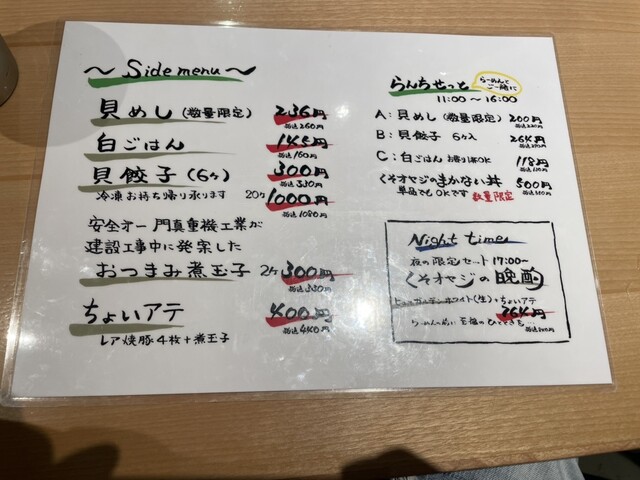 〜 Side menu 〜
貝めし (数量限定) 236円
税込260円
白ごはん 145円
税込160円
貝餃子 (6ヶ) 300円
税込330円
冷凍お持ち帰り承ります 20ヶ 1000円
税込1080円
安全オー 門真重機工業が
建設工事中に発案した
おつまみ煮玉子 2ヶ 300円
税込330円
ちょいアテ 400円
税込440円
レア焼豚4枚+煮玉子
らんちせっと
らーめんとご一緒に
11:00〜16:00
A: 貝めし (数量限定) 200円
税込220円
B: 貝餃子 6ヶ入 264円
C: 白ごはん お替りOK 118円
くそオヤジのまかない丼 500円
単品でもOKです 数量限定
Night time
夜の限定セット 17:00〜
くそオヤジの晩酌
ホワイト(生)+ちょいアテ
764円